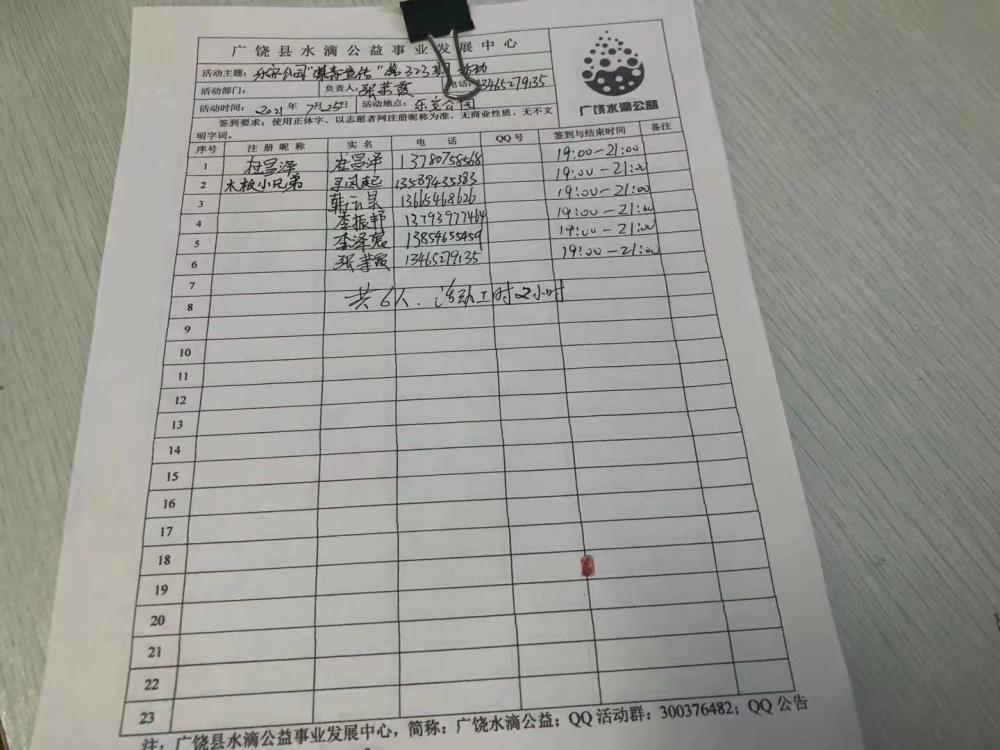 广饶县水滴公益事业发展中心
活动主题：乐安公园"慈善宣传"第323期活动
活动部门： 负责人：张荣霞 电话：13465279135
活动时间：2021年7月25日 活动地点：乐安公园
广饶水滴公益
签到要求：使用正体字、以志愿者网注册昵称为准，无商业性质、无不文
明字词。
序号 注册昵称 实名 电话 QQ号 签到与结束时间 备注
1 杜昌泽 杜昌泽 13780758568 19:00-21:00
2 木板小兄弟 王凤起 13589435383 19:00-21:00
3 韩云昊 13665468626 19:00-21:00
4 李振邦 13793977464 19:00-21:00
5 李泽宽 13854655459 19:00-21:00
6 张荣霞 13465279135 19:00-21:00
7
8 共6人.活动工时2小时
9
10
11
12
13
14
15
16
17
18
19
20
21
22
23
注：广饶县水滴公益事业发展中心，简称：广饶水滴公益；QQ活动群：300376482；QQ公告